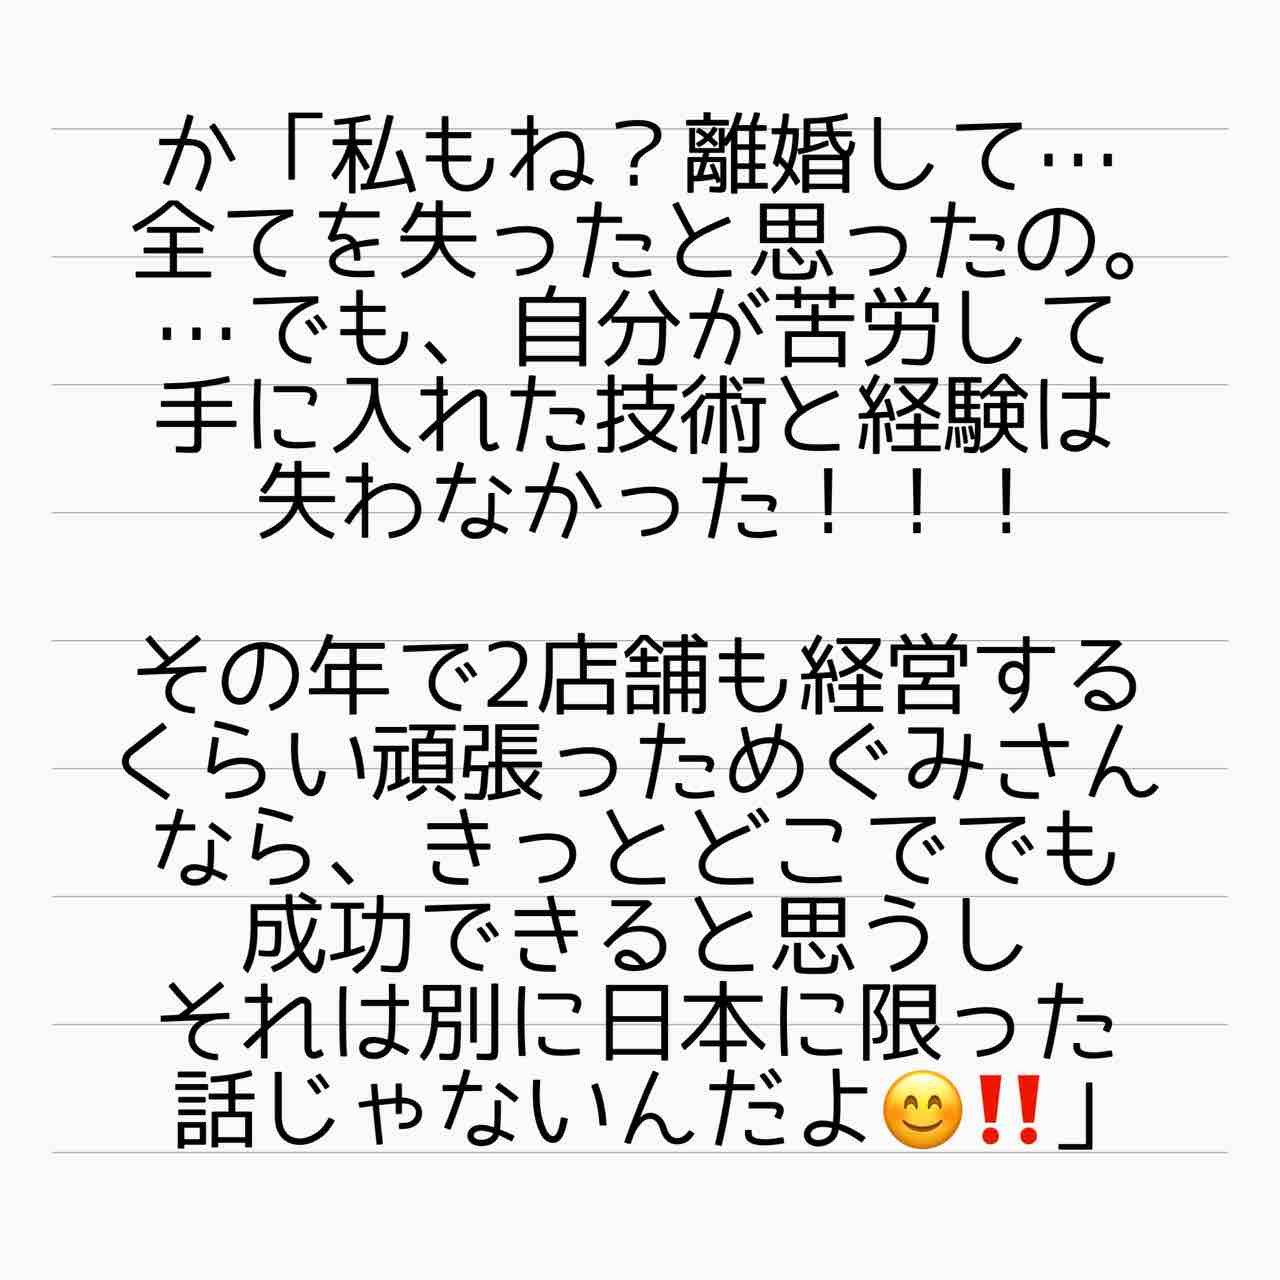 か「私もね？離婚して…
全てを失ったと思ったの。
…でも、自分が苦労して
手に入れた技術と経験は
失わなかった！！！
その年で2店舗も経営する
くらい頑張っためぐみさん
なら、きっとどこででも
成功できると思うし
それは別に日本に限った
話じゃないんだよ😊‼️」